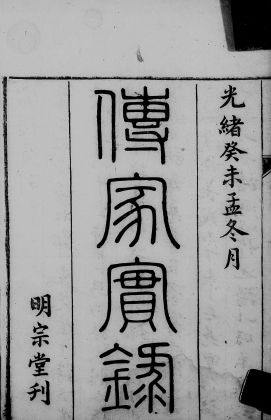 光緒癸未孟冬月
傳家實錄
明宗堂刊